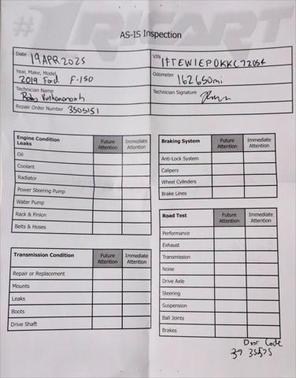 #1 START
AS-IS Inspection
Date 19 APR 2025
VIN 1FTEW1EP0KKC72054
Year, Make, Model 2019 Ford F-150
Odometer 162650mi
Technician Name
Technician Signature
Repair Order Number 3505151
Engine Condition Leaks Future Attention Immediate Attention
Oil
Coolant
Radiator
Power Steering Pump
Water Pump
Rack & Pinion
Belts & Hoses
Transmission Condition Future Attention Immediate Attention
Repair or Replacement
Mounts
Leaks
Boots
Drive Shaft
Braking System Future Attention Immediate Attention
Anti-Lock System
Calipers
Wheel Cylinders
Brake Lines
Road Test Future Attention Immediate Attention
Performance
Exhaust
Transmission
Noise
Drive Axle
Steering
Suspension
Ball Joints
Brakes
Door Code